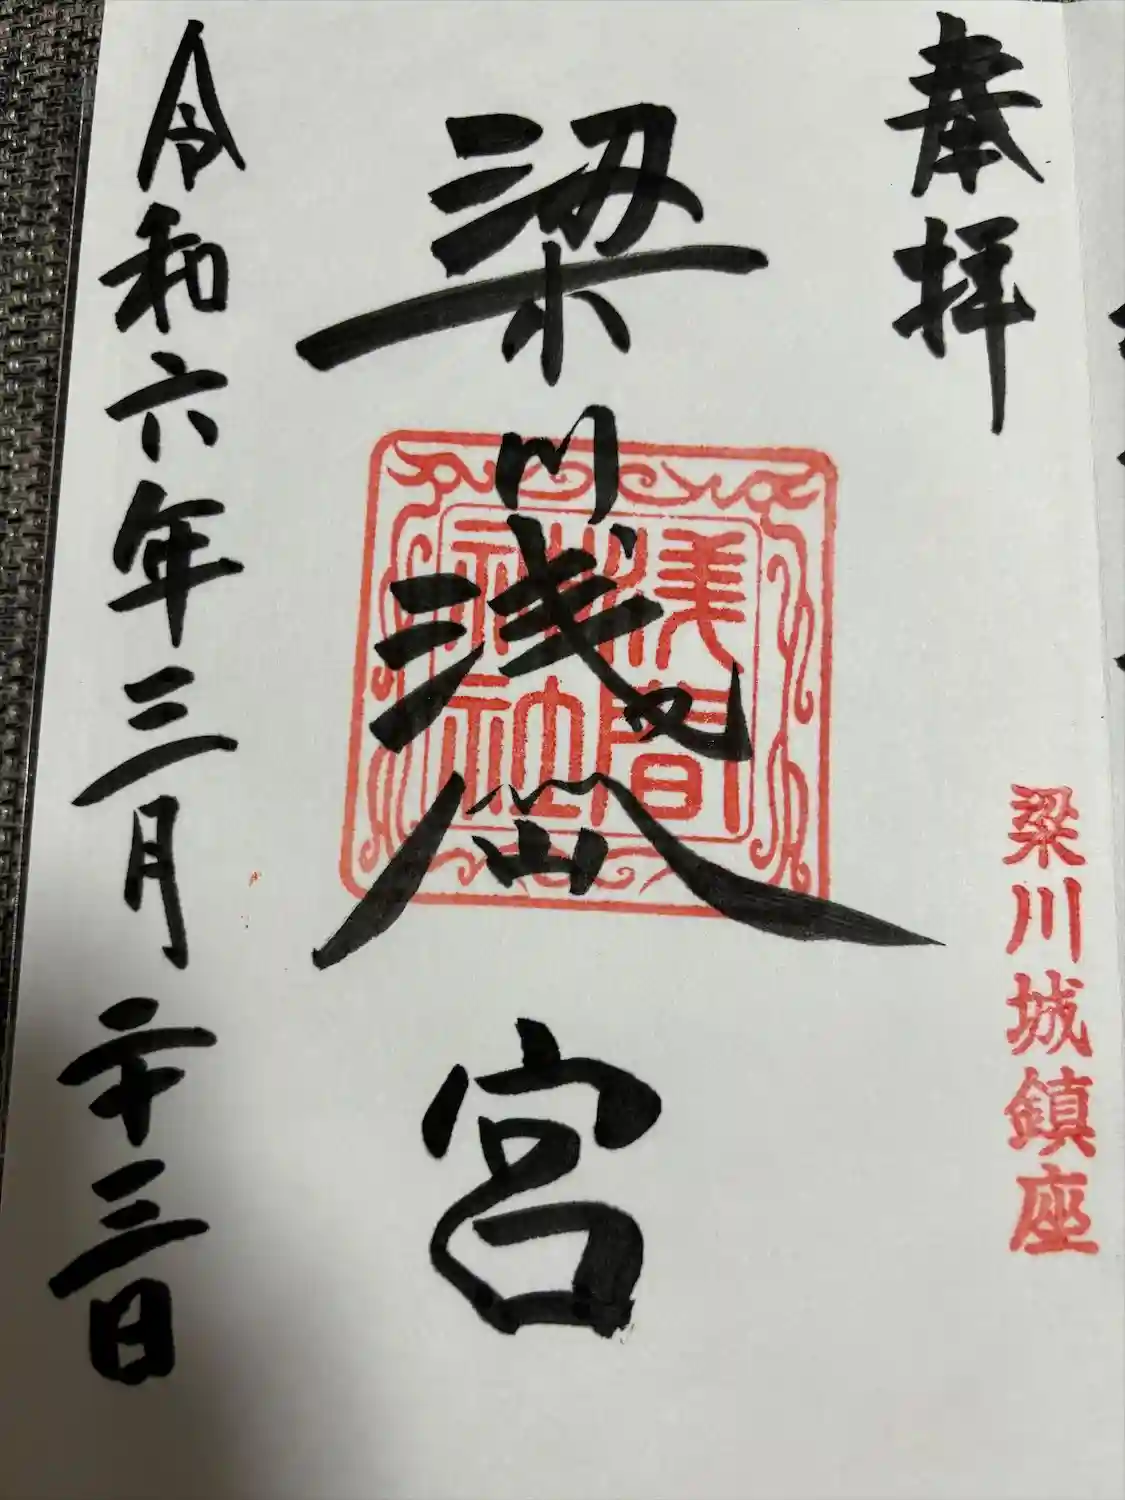 奉拝
梁川城鎮座
梁川浅仚宮
浅間
神社
令和六年三月二十三日